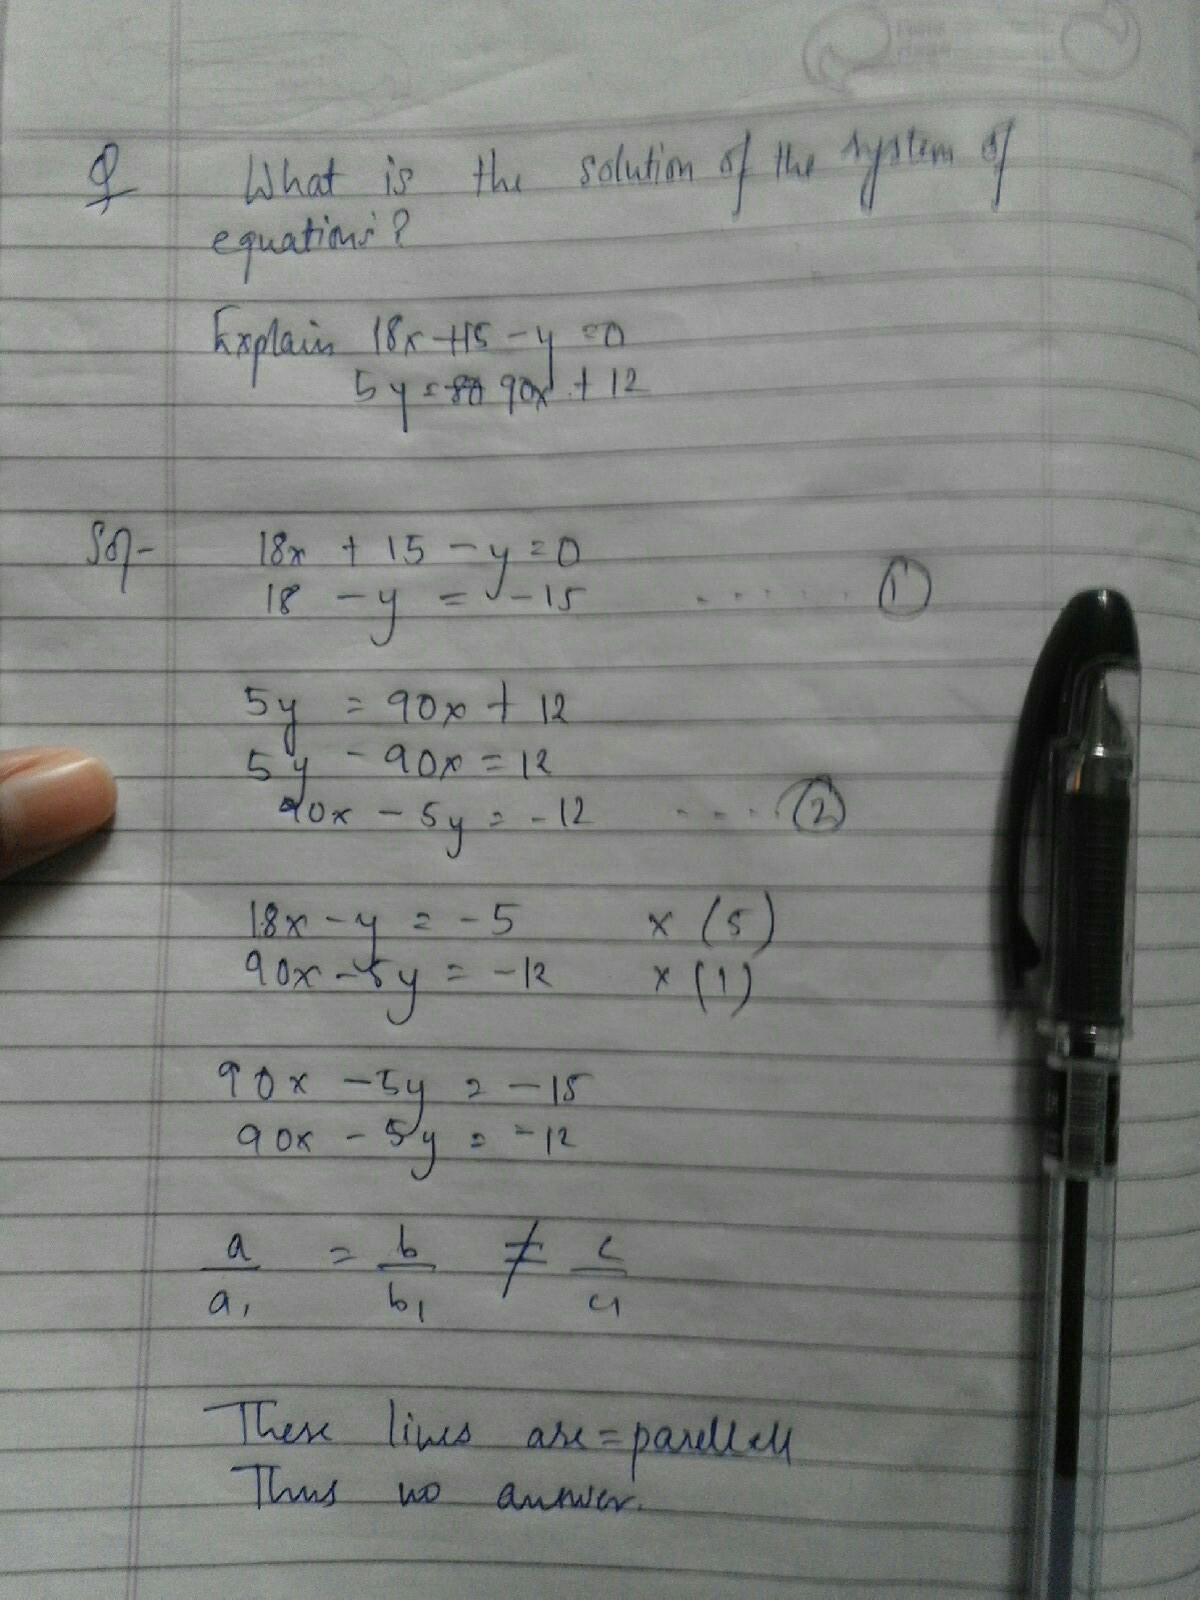 Q What is the solution of the system of
equations?
Explain 18x +15 - y = 0
5y = 90x + 12
Sol- 18x + 15 - y = 0
18 - y = -15 ...... ①
5y = 90x + 12
5y - 90x = 12
90x - 5y = -12 .... ②
18x - y = -5 x (5)
90x - 5y = -12 x (1)
90x - 5y = -15
90x - 5y = -12
a/a₁ = b/b₁ ≠ c/c₁
These lines are = parellell
Thus no answer.